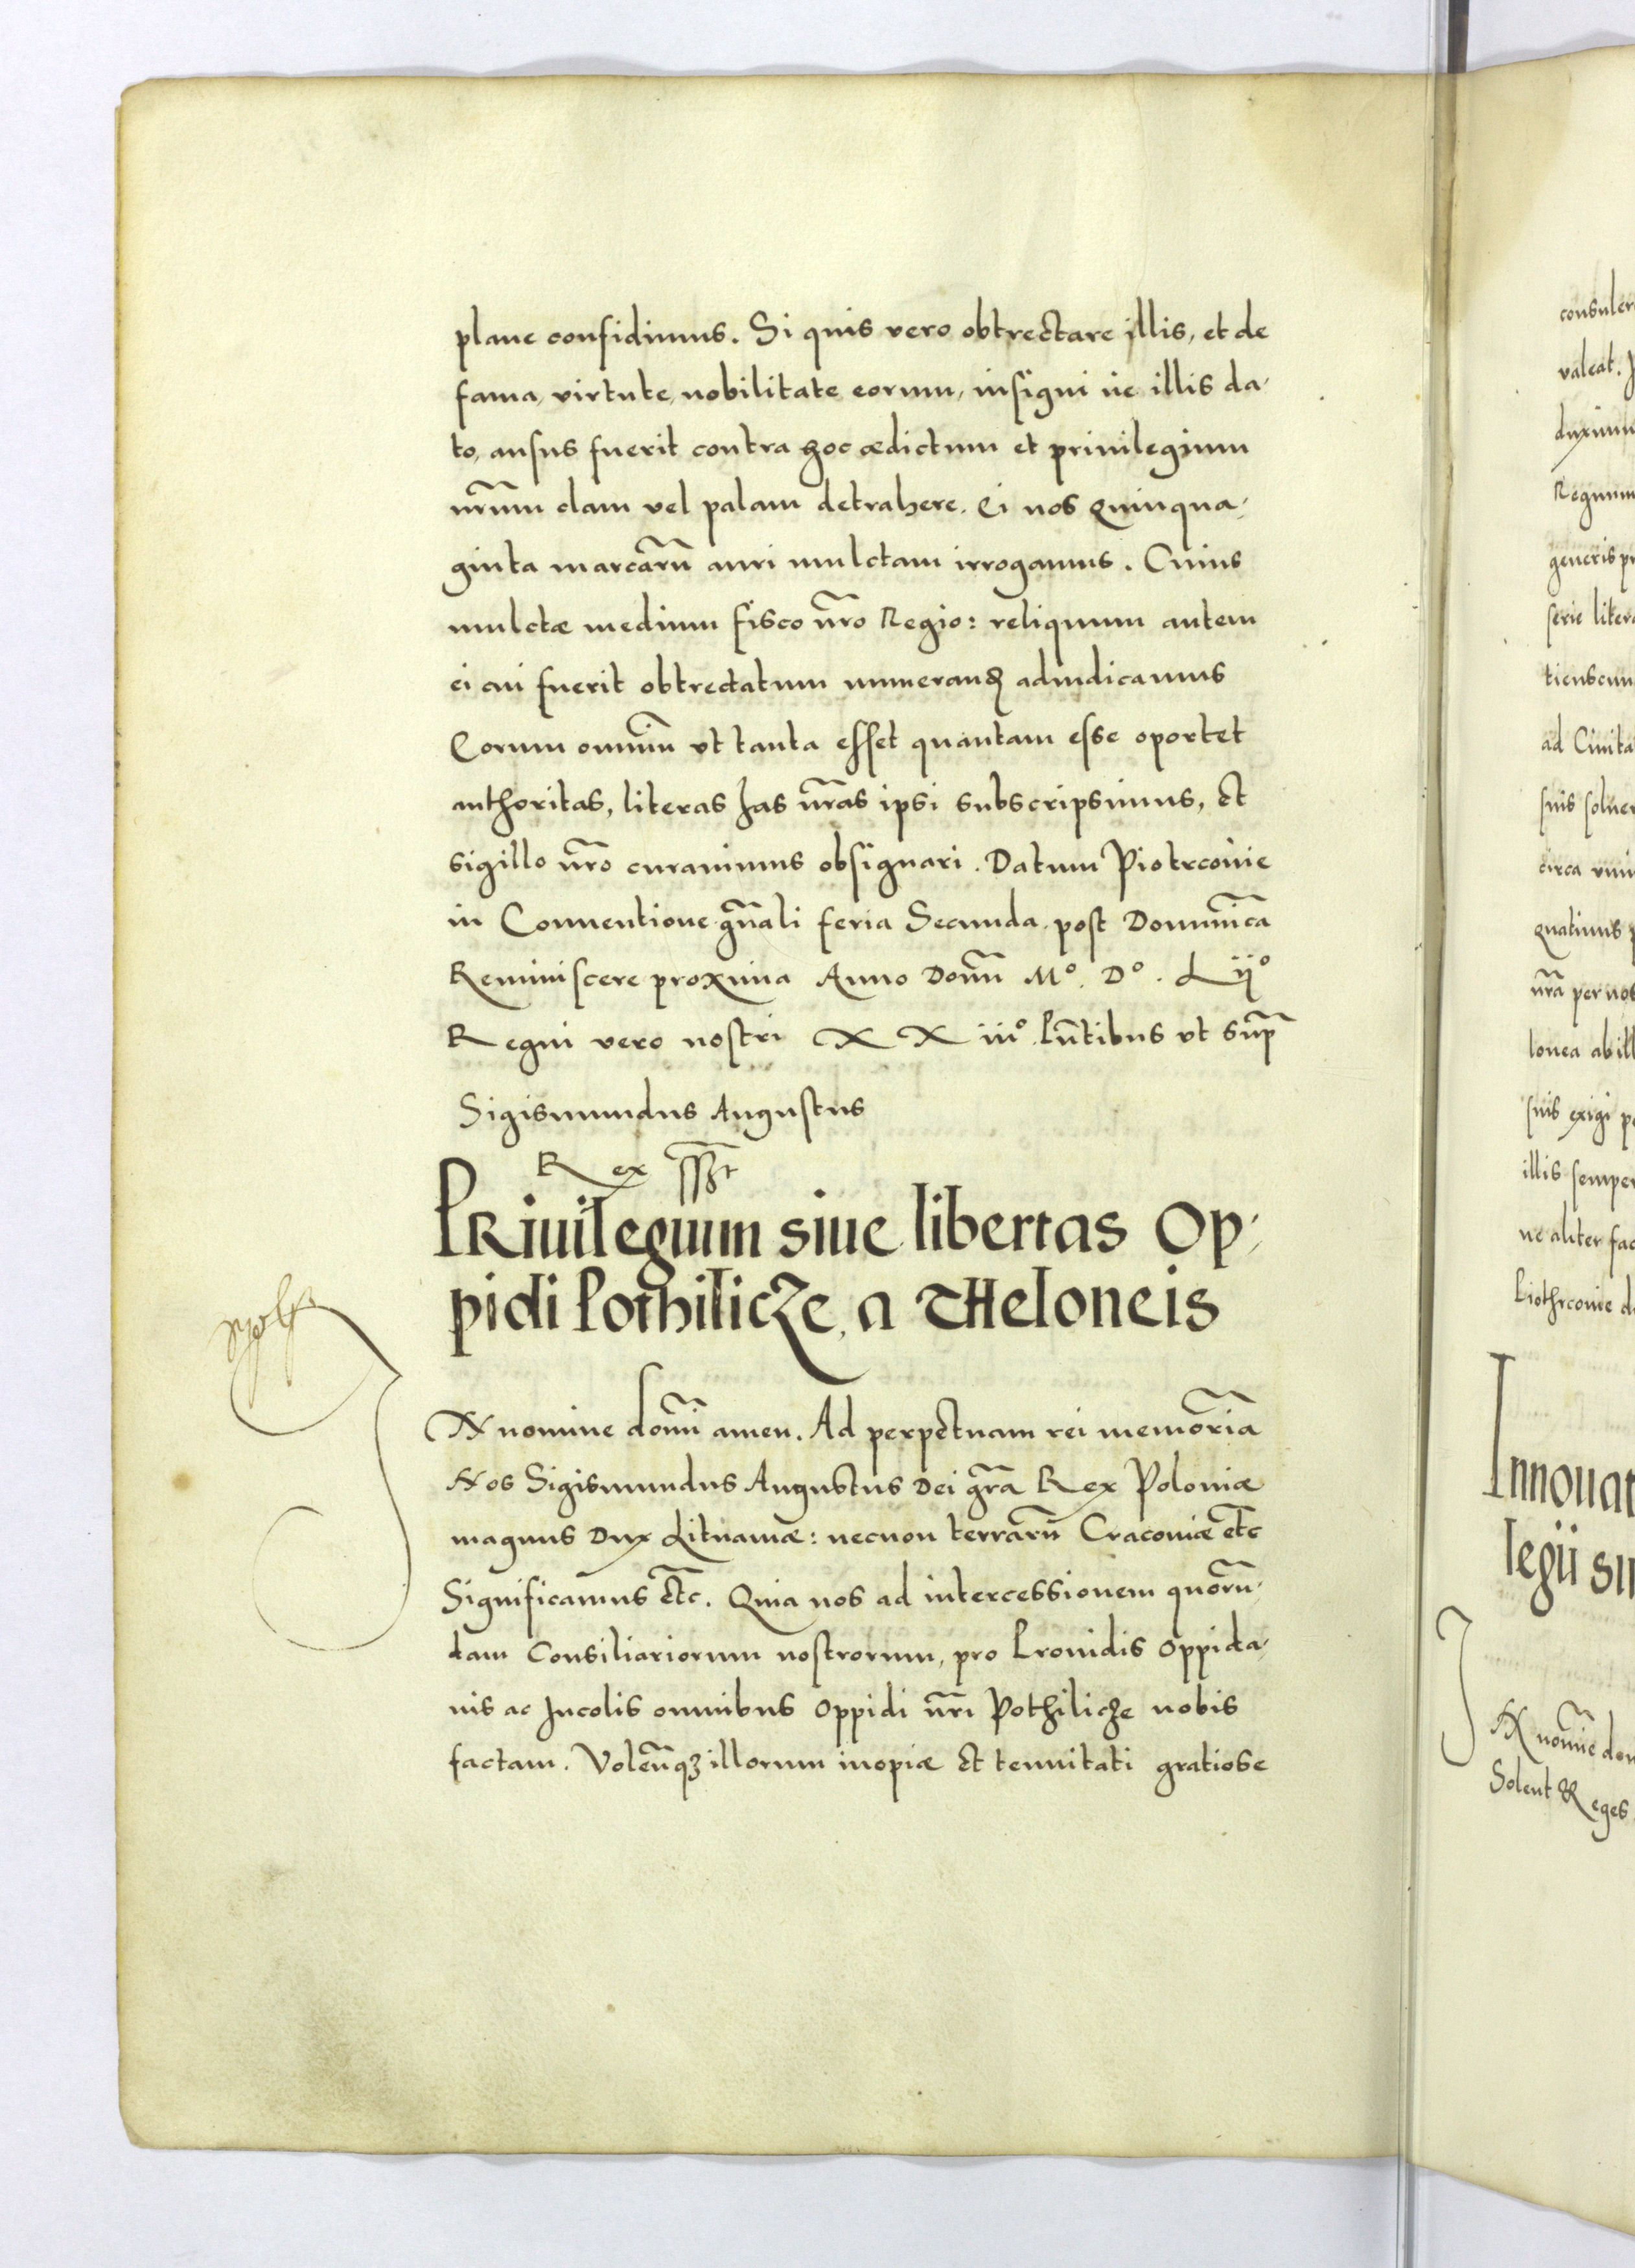 plane confidimus. Si quis vero obtrectare illis, et de
fama, virtute, nobilitate eorum, insigni ue illis da-
to, ausus fuerit contra hoc ædictum et priuilegium
nr̃um clam vel palam detrahere. Ei nos Quinqua-
ginta marcarũ auri mulctam irrogamus. Cuius
mulctæ medium fisco nr̃o Regio: reliquum autem
ei cui fuerit obtrectatum numeranđ adiudicamus
Eorum omniũ vt tanta esset quantam esse oportet
authoritas, literas has nr̃as ipsi subscripsimus, et
sigillo nr̃o curauimus obsignari. Datum Piotrcouie
in Conuentione gñali feria Secunda post Dominicã
Reminiscere proxima Anno Domĩ Mº. Dº. Lijº
Regni vero nostri XXiiiº. Pñtibus vt sup̃
Sigismundus Augustus
Rex
PRiuilegium siue libertas Op-
pidi Pothilicze, a THeloneis
IN nomine domĩ amen. Ad perpetuam rei memoriã
Nos Sigismundus Augustus Dei gr̃a Rex Poloniæ
magnus Dux Lituaniæ: necnon terrarũ Cracouiæ etc
Significamus etc. Quia nos ad intercessionem quorũ-
dam Consiliariorum nostrorum, pro Prouidis oppida-
nis ac Incolis omnibus oppidi nr̃i Pothilicze nobis
factam. Volen̄qȝ illorum inopiæ et tenuitati gratiose
consuler
valeat.
duximu
Regnum
generis pr
serie liter
ad Ciuita
suis soluer
circa
quatinus p
nr̃a per nos
lonea ab ill
suis exigi p
illis semper
ne aliter fac
Piothrcouie d
Innouat
legii si
IN nomĩe dom
Solent Reges